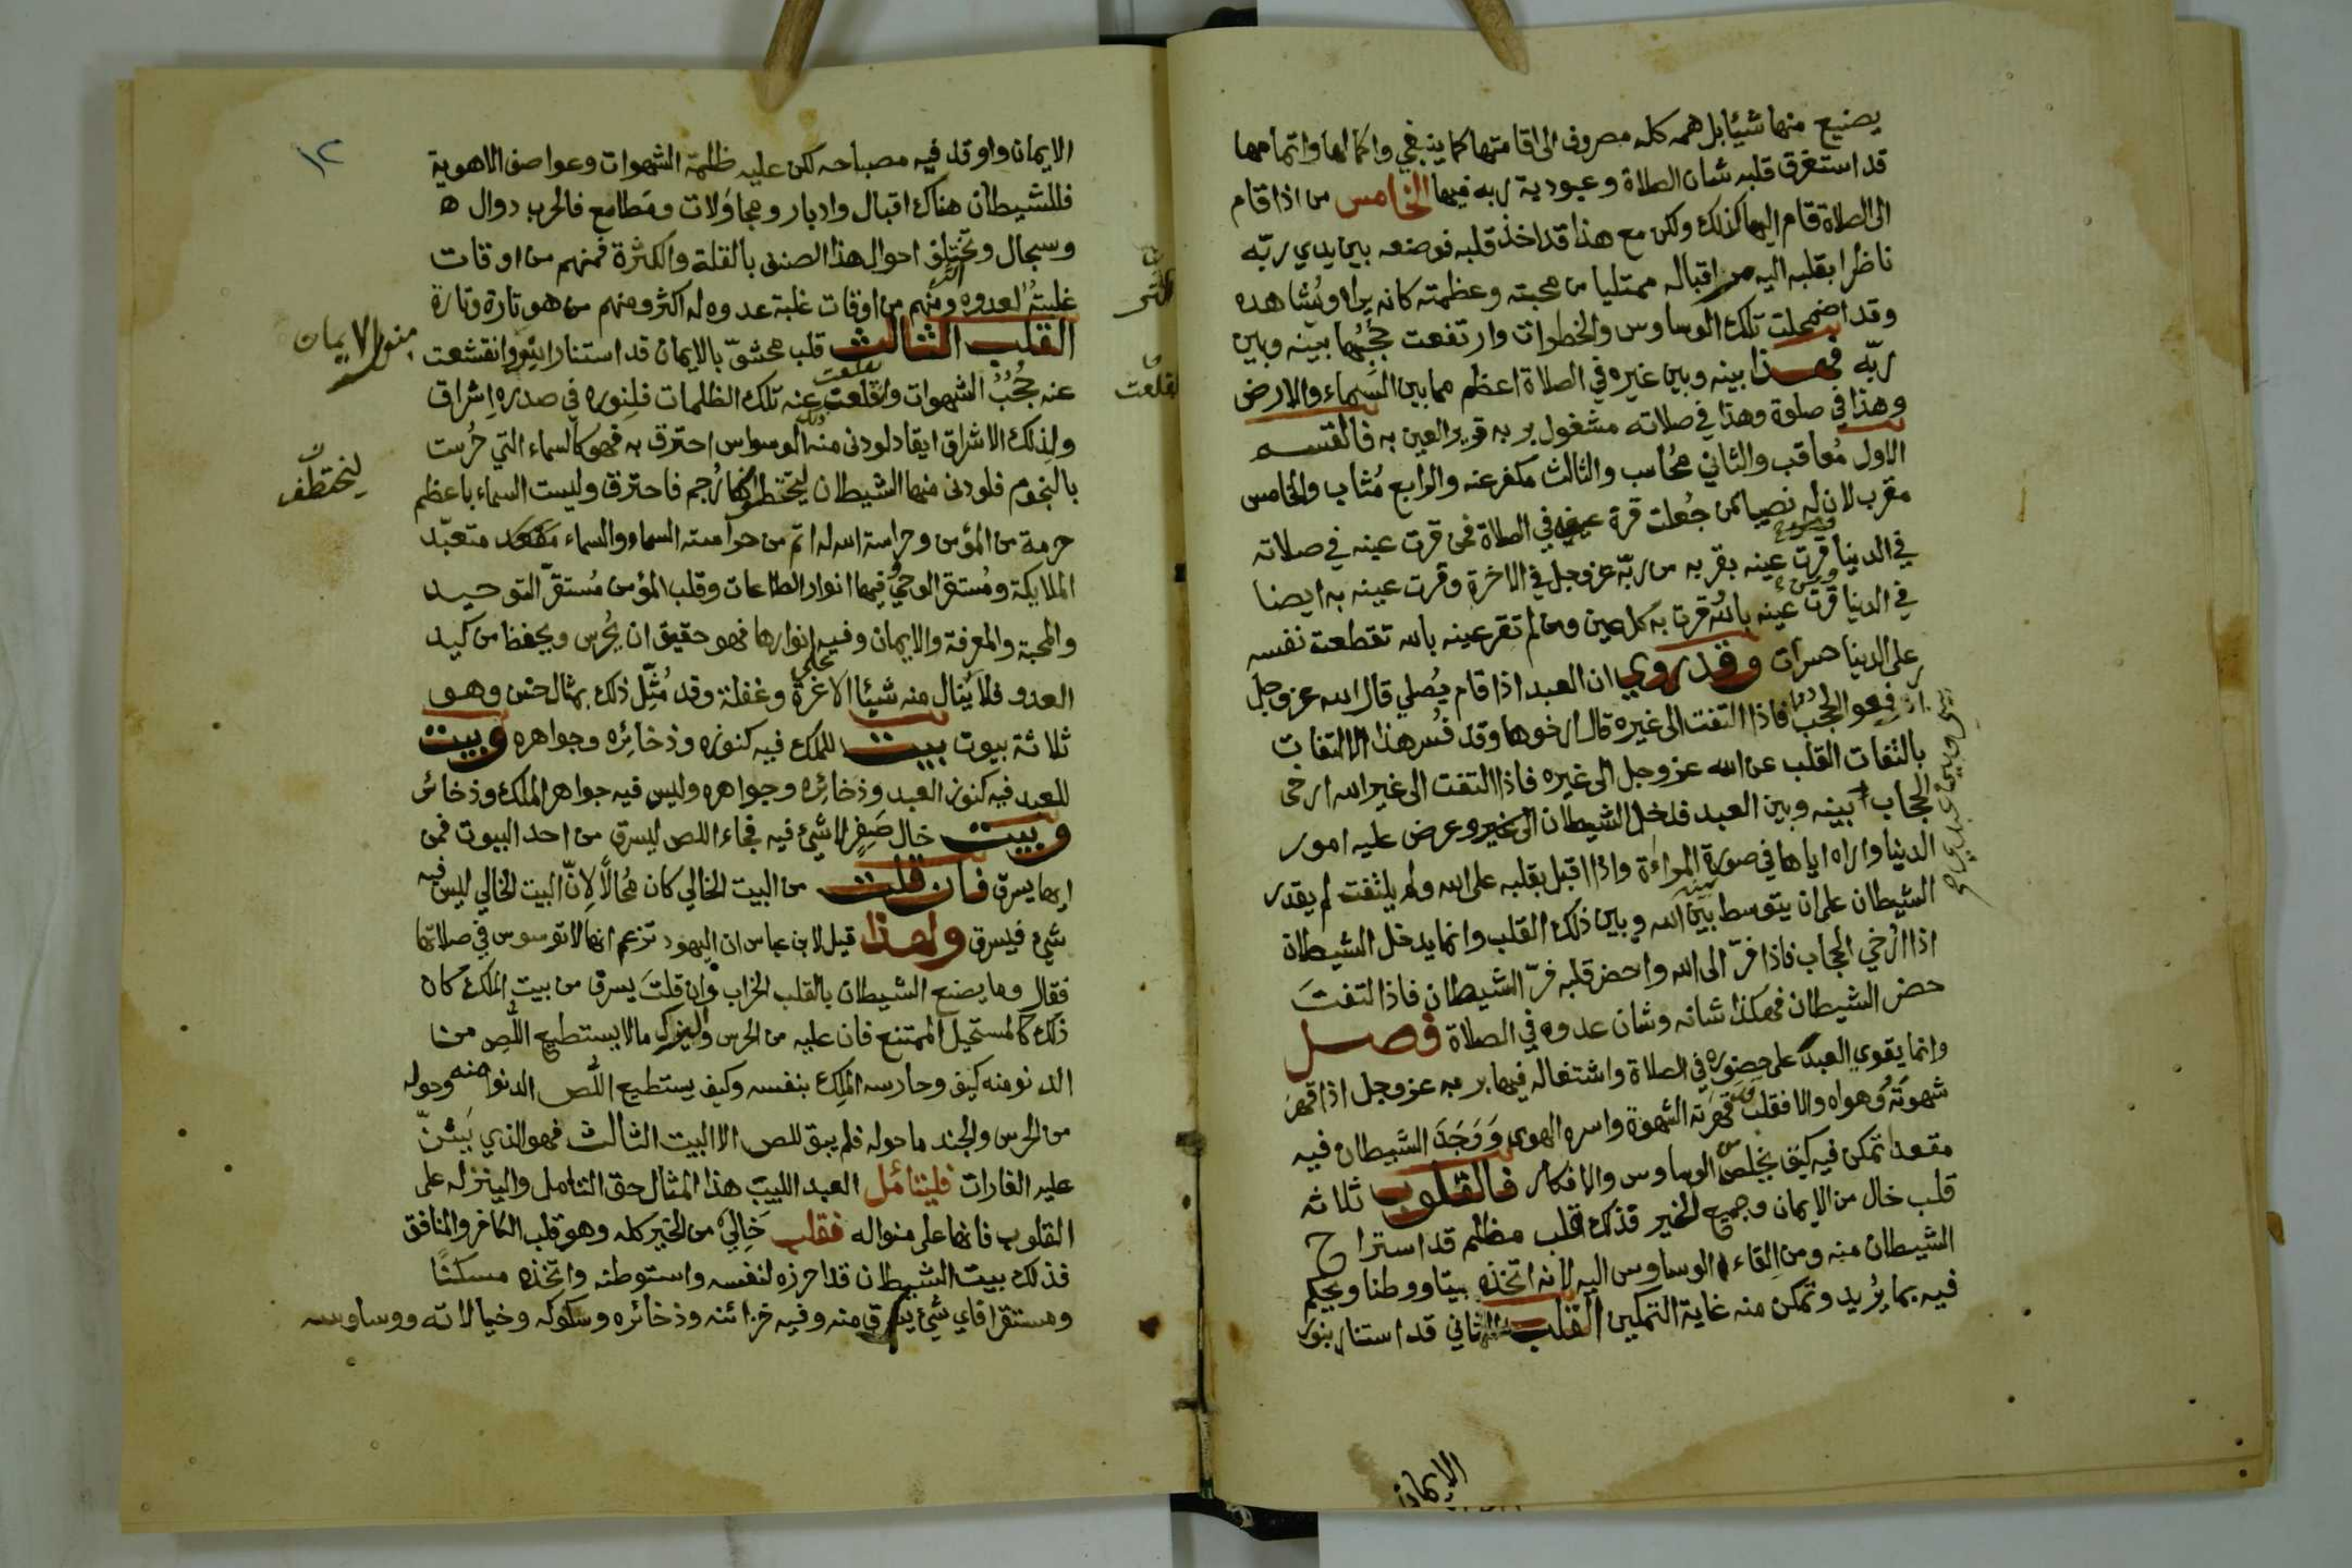 يضيع منها شيئا بل همه كله مصروف الى اقامتها كما ينبغي واكمالها واتمامها
قد استغرق قلبه شان الصلاة وعبودية ربه فيها الخامس من اذا قام
الى الصلاة قام اليها كذلك ولكن مع هذا قد اخذ قلبه فوضعه بين يدي ربّه
ناظرا بقلبه اليه من اقباله ممتليا من محبته وعظمته كانه يراه ويُشاهده
وقد اضمحلت تلك الوساوس والخطرات وارتفعت حُجُبُها بينه وبين
ربّه فهذا بينه وبين غيره في الصلاة اعظم مما بين السَماء والارض
وهذا في صلوة وهذا في صلاته مشغول بربه قرير العين به فالقسم
الاول مُعاقب والثاني محُاسب والثالث مكفر عنه والرابع مُثاب والخامس
مقرب لان له نصيبا ممن جُعلت قرة عينه في الصلاة فمن قرت عينه في صلاته
في الدنيا قرت عينه بقربه من ربّه عز وجل في الاخرة وقرت عينه به ايضا
في الدنيا ومن قرت عينه بالله قرت به كل عين ومن لم تقر عينه بالله تقطعت نفسه
على الدنيا حسرات وقد روي ان العبد اذا قام يُصلي قال الله عز وجل
ارفعو الحُجُب فاذا التفت الى غيره قال ارخوها وقد فُسر هذا الالتفات
بالتفات القلب عن الله عز وجل الى غيره فاذا التفت الى غير الله ارخى
الحجاب بينه وبين العبد فدخل الشيطان الى غيره وعرض عليه امور
الدنيا واراه اياها في صورة المراءَة واذا اقبل بقلبه على الله ولم يلتفت لم يقدر
الشيطان على ان يتوسط بين الله وبين ذلك القلب وانما يدخل الشيطان
اذا ارخي الحجاب فاذا فرّ الى الله واحضر قلبه فرّ الشيطان فاذا التفتَ
حضر الشيطان فهكذا شانه وشان عدوه في الصلاة فصل
وانما يقوي العبد على حضوره في الصلاة واشتغاله فيها بربه عز وجل اذا قهر
شهوتَهُ وهواه والا فقلب قد قهرته الشهوة واسره الهوى وَوَجَدَ الشيطان فيه
مقعدا تمكن فيه كيف يخلص من الوساوس والافكار فالقلوب ثلاثه
قلب خال من الايمان وجميع الخير فذلك قلب مظلم قد استراح
الشيطان منه ومن اِلقاء الوساوس اليه لانه اتخذه بيتا ووطنا ويحكم
فيه بما يُريد وتمكن منه غاية التمكين القلب الثاني قد استنار بنور
الايمان
١٢
الايمان واوقد فيه مصباحه لكن عليه ظلمة الشهوات وعواصف الاهوية
فللشيطان هناك اقبال وادبار ومجاوَلات ومَطامع فالحرب دوال ه
وسجال وتختلف احوال هذا الصنف بالقلة والكثرة فمنهم من اوقات
غلبتهُ لعدوه اكثر ومنهم من اوقات غلبة عدوه له اكثر ومنهم من هو تارة وتارة
القلب الثالث قلب محشوّ بالايمان قد استنار بنور وانقشعت
بنور الايمان
عنه حُجُبُ الشهوات واقلعت عنه تلك الظلمات فلِنوره في صدره اِشراق
ولِذلك الاشراق ايقاد لو دنى منه الوسواس احترق به فهو كالسماء التي حُرست
بالنجوم فلو دنى منها الشيطان ليتخطاها رُجم فاحترق وليست السماء باعظم
ليتخطف
حرمة من المؤمن وحراسة الله له اتم من حراسته السماء والسماء مقعد متعبّد
الملايكة ومُستقر الوحي وفيها انوار الطاعات وقلب المؤمن مُستقرّ التوحيد
والمحبة والمعرفة والايمان وفيه انوارها فهو حقيق ان يُحرس ويحفظ من كيد
العدو فلا يُنال منه شيئا الا على غرة وغفلة وقد مُثِّل ذلك بمثال حسن وهو
ثلاثة بيوت بيت للملك فيه كنوزه وذخائره وجواهره وبيت
للعبد فيه كنوز العبد وذخائره وجواهره وليس فيه جواهر الملك وذخائر
وبيت خال صَفِرٍ لا شيئ فيه فجاء اللص ليسرق من احد البيوت فمن
ايها يسرق فان قلت من البيت الخالي كان مُحالًا لاِنّ البيت الخالي ليس فيه
شيئ فيسرق ولهذا قيل لابن عباس ان اليهود تزعم انها لا توسوس في صلاتها
فقال وما يصنع الشيطان بالقلب الخراب وان قلتَ يسرق من بيت الملك كان
ذلك كالمستحيل الممتنع فان عليه من الحرس واليزك ما لا يستطيع اللّص من
الدنو منه كيف وحارسه الملِك بنفسه وكيف يستطيع اللّص الدنو منه وحوله
من الحرس والجند ما حوله فلم يبق للص الا البيت الثالث فهو الذي يَشُنّ
عليه الغارات فليتأمل العبد اللبيب هذا المثال حق التامل ولينزله على
القلوب فانها على منواله فقلب خَالِيِ من الخير كله وهو قلب الكافر والمنافق
فذلك بيت الشيطان قد احرزه لنفسه واستوطنه واتخذه مسكنًا
ومستقرا فاي شيئ يسرق منه وفيه خزائنه وذخائره وشكوكه وخيالاته ووساوسه